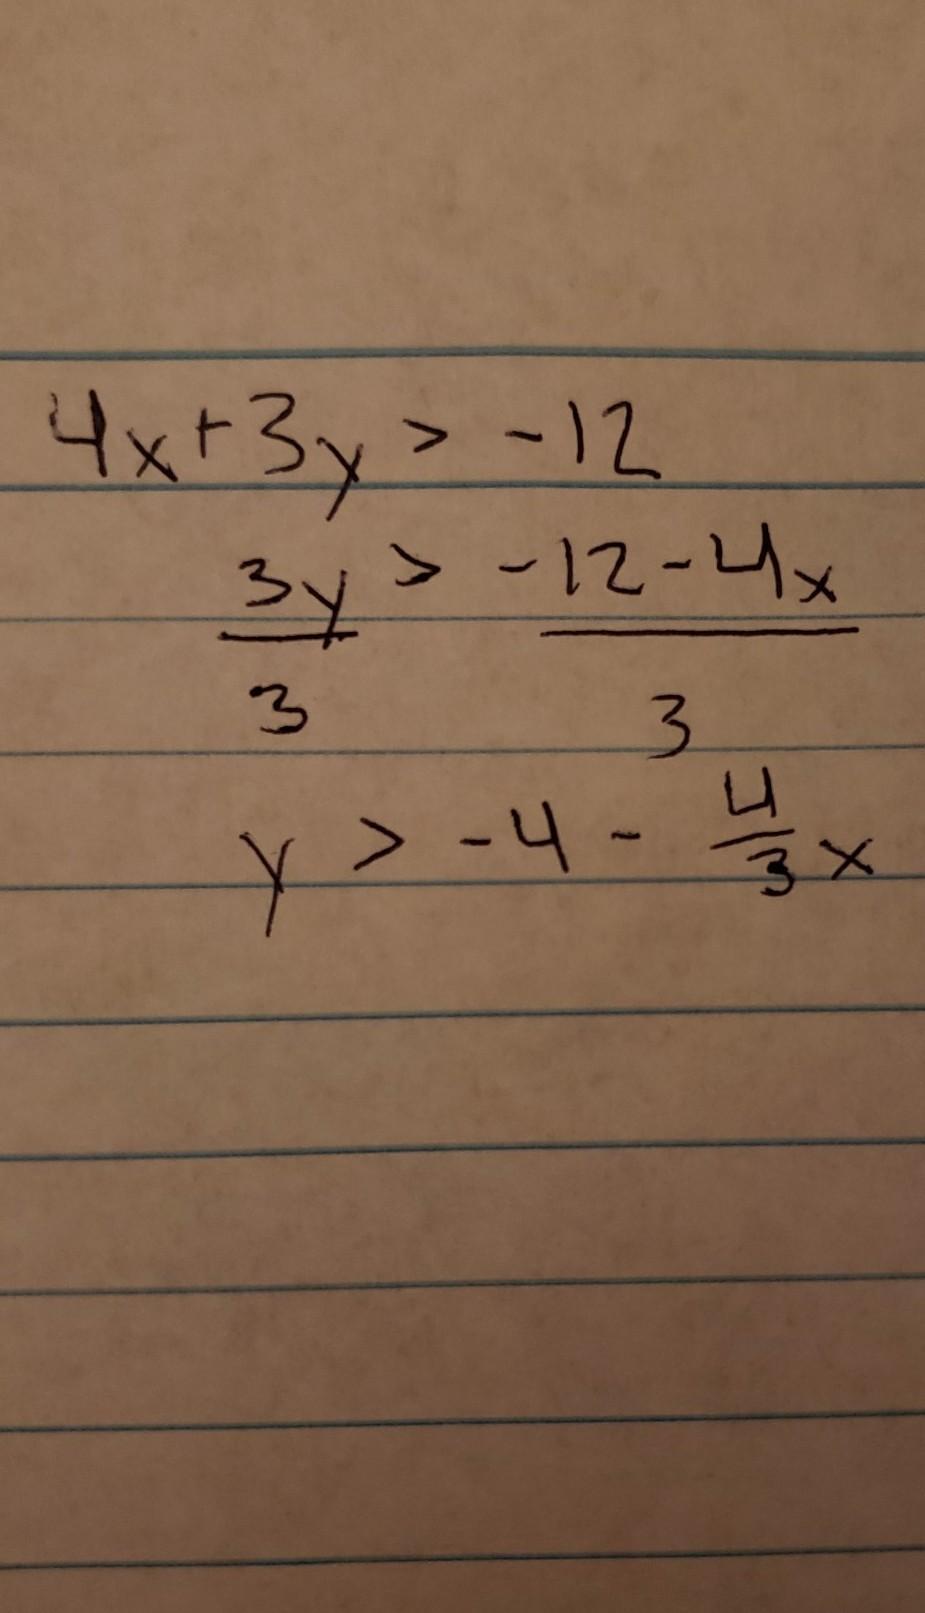 4x+3y > -12
3y > -12-4x
3 3
y > -4 - 4/3 x